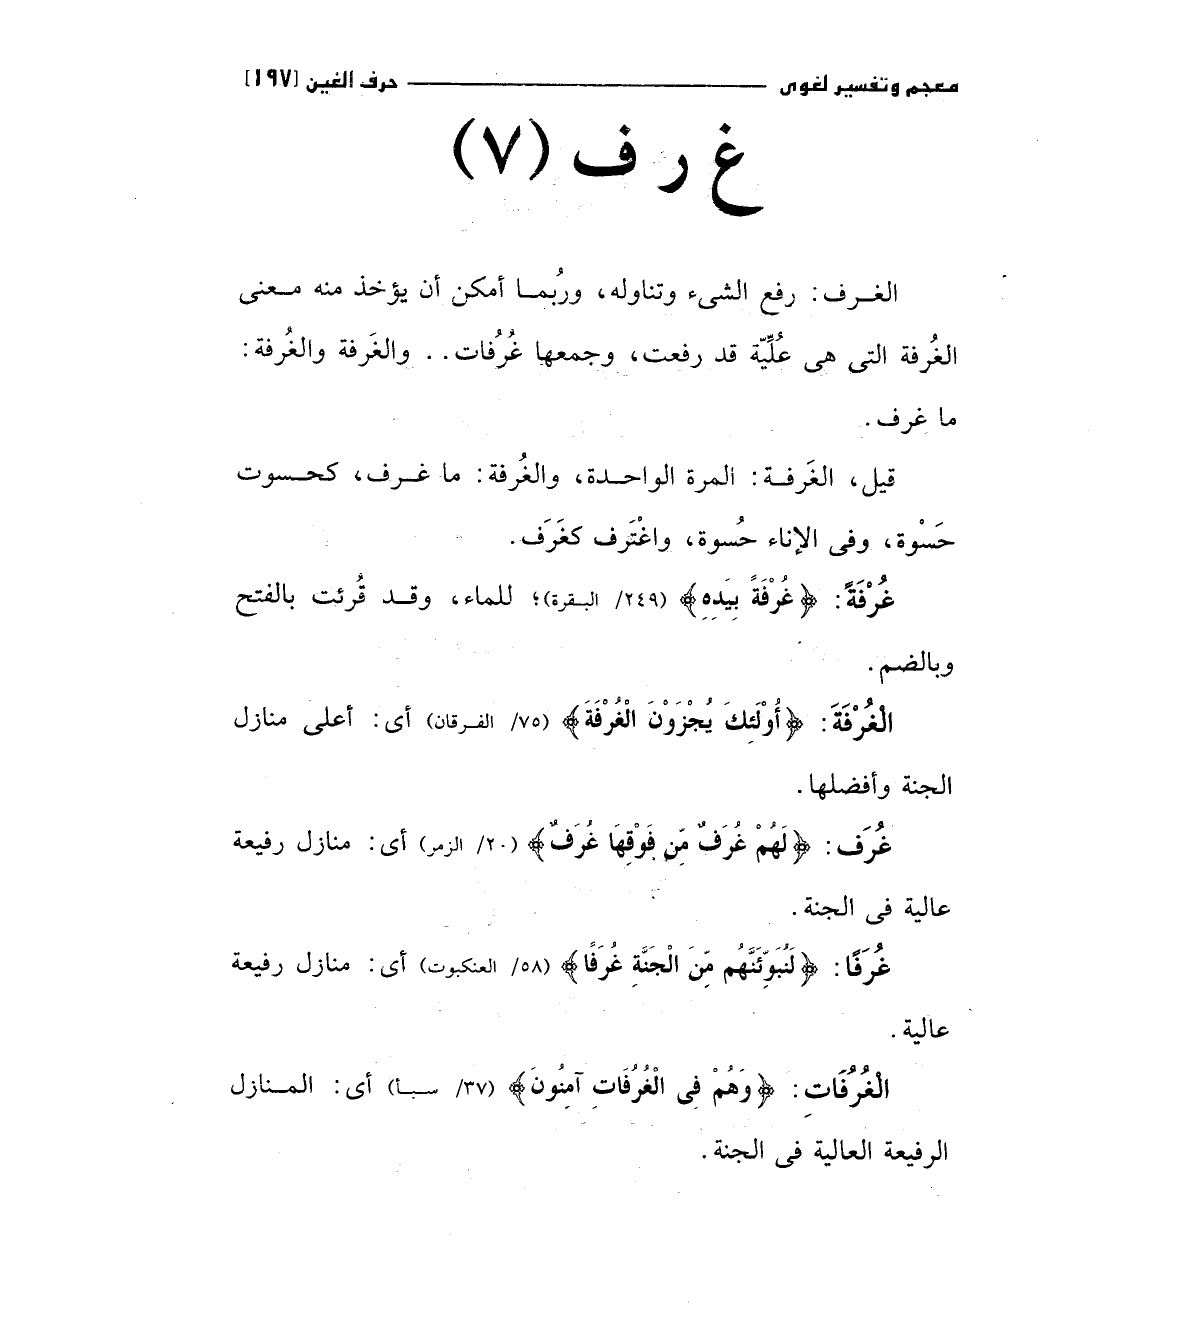 معجم وتفسير لغوى ـــــــــ حرف الغين [١٩٧]
غ ر ف (٧)
الغـرف: رفع الشىء وتناوله، ورُبمـا أمكن أن يؤخذ منه معـنى
الغُرفة التى هى عُلِّيّة قد رفعت، وجمعها غُرُفات. . والغَرفة والغُرفة:
ما غرف.
قيل، الغَرفـة: المرة الواحـدة، والغُرفة: ما غـرف، كحسـوت
حَسْوة، وفى الإناء حُسوة، واغْتَرف كغَرَف.
غُرْفَةً: ﴿غُرْفَةً بِيَدِهِ﴾ (٢٤٩/ البـقرة)؛ للماء، وقـد قُرئت بالفتح
وبالضم.
الْغُرْفَةَ: ﴿أُوْلَئِكَ يُجْزَوْنَ الْغُرْفَةَ﴾ (٧٥/ الفـرقان) أى: أعلى منازل
الجنة وأفضلها.
غُرَف: ﴿لَهُمْ غُرَفٌ مّن فَوْقِهَا غُرَفٌ﴾ (٢٠/ الزمر) أى: منازل رفيعة
عالية فى الجنة.
غُرَفًا: ﴿لَنُبَوِّئَنَّهُم مِّنَ الْجَنَّةِ غُرَفًا﴾ (٥٨/ العنكبوت) أى: منازل رفيعة
عالية.
الْغُرُفَاتِ: ﴿وَهُمْ فِى الْغُرُفَاتِ آمِنُونَ﴾ (٣٧/ سـبـأ) أى: المـنازل
الرفيعة العالية فى الجنة.